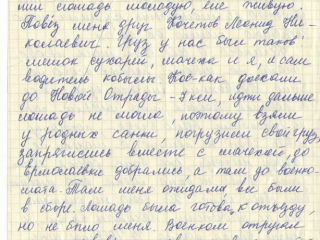 лошадь молодую, еле живую.
Повёз меня друг Кочетов Леонид Ни-
колаевич. Груз у нас был таков
мешок сухарей, мачеха и я, и сам
водитель кобылы. Кое-как доехали
до Новой Отрады - 7 км, идти дальше
лошадь не могла, поэтому взяли
у родных санки, погрузили свой груз,
запряглись вместе с мачехой, до
Ермолаевки добрались, а там до военко-
мата. Там меня ожидали, все были
в сборе. Лошадь была готова к отъезду,
но не было меня. Военком отругал